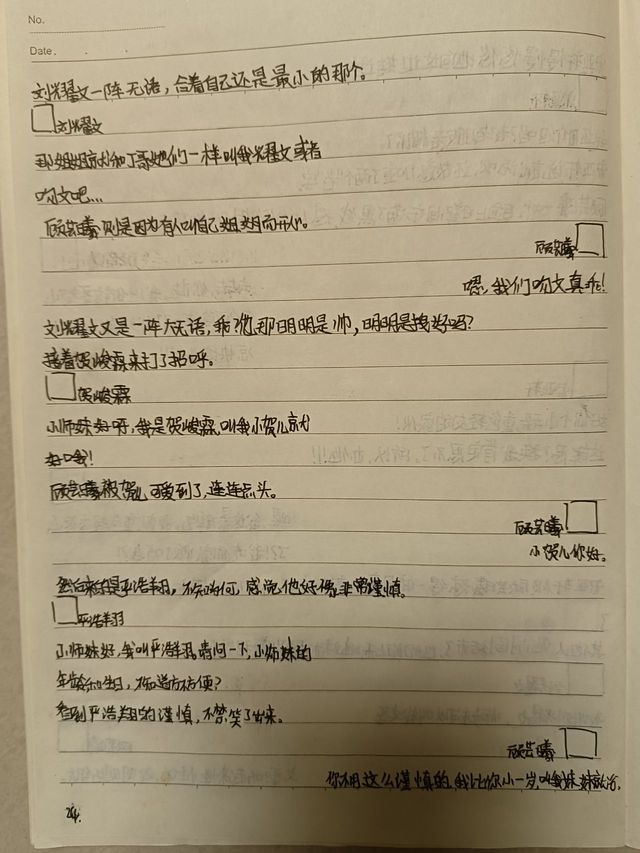 No.
Date.
刘耀文一阵无语，合着自己还是最小的那个。
刘耀文
那姐姐就和丁哥她们一样叫我耀文或者
吻文吧...
顾芸曦则是因为有人叫自己姐姐而开心。
顾芸曦
嗯，我们吻文真乖！
刘耀文又是一阵大无语，乖？他那明明是帅，明明是拽好吗？
接着贺峻霖来打了招呼。
贺峻霖
小师妹好呀，我是贺峻霖，叫我小贺儿就
好哦！
顾芸曦被贺儿可爱到了，连连点头。
顾芸曦
小贺儿你好。
然后来的是严浩翔，不知为何，感觉他好像非常谨慎。
严浩翔
小师妹好，我叫严浩翔，请问一下，小师妹的
年龄和生日，不知道方不方便？
看到严浩翔的谨慎，不禁笑了出来。
顾芸曦
你不用这么谨慎的，我比你小一岁，叫我妹妹就好。
24.